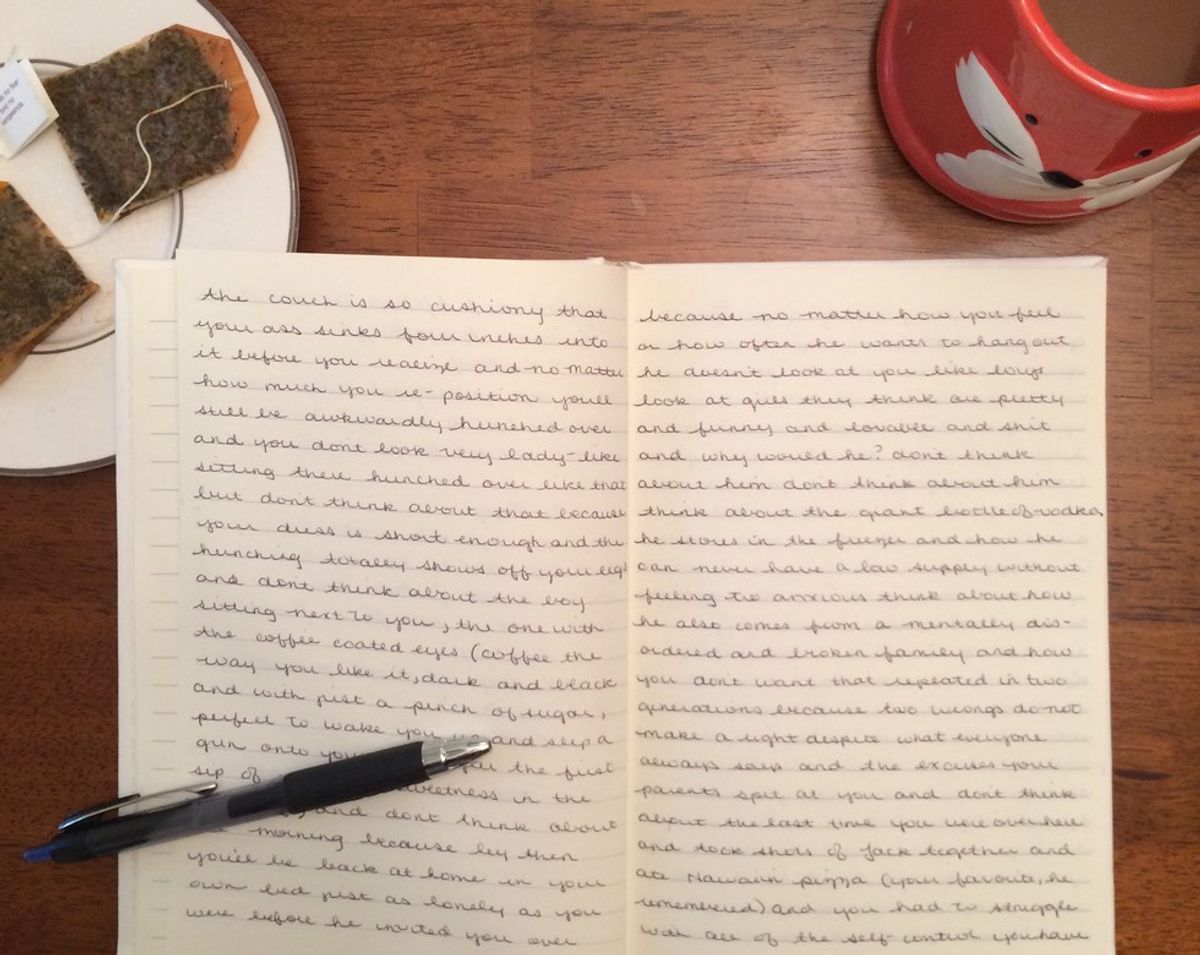 the couch is so cushiony that
your ass sinks four inches into
it before you realize and no matter
how much you re-position you'll
still be awkwardly hunched over
and you dont look very lady-like
sitting there hunched over like that
but don't think about that because
your dress is short enough and the
hunching totally shows off your legs
and dont think about the boy
sitting next to you, the one with
the coffee coated eyes (coffee the
way you like it, dark and black
and with just a pinch of sugar,
perfect to wake you up and slip a
grin onto your the first
sip of sweetness in the
and dont think about
morning because by then
you'll be back at home in your
own bed just as lonely as you
were before he invited you over
because no matter how you feel
or how often he wants to hangout
he doesn't look at you like boys
look at girls they think are pretty
and funny and lovable and shit
and why would he? don't think
about him don't think about him
think about the giant bottle of vodka
he stores in the freezer and how he
can never have a low supply without
feeling too anxious think about how
he also comes from a mentally dis-
ordered and broken family and how
you dont want that repeated in two
generations because two wrongs do not
make a right despite what everyone
always says and the excuses your
parents spit at you and don't think
about the last time you were over here
and took shots of Jack together and
ate Hawaiin pizza (your favorite, he
remembered) and you had to struggle
with all of the self-control you have